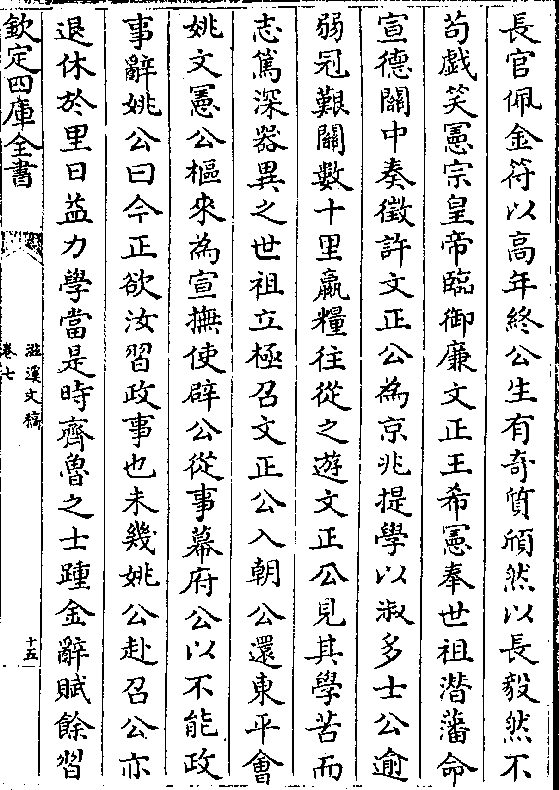 長官佩金符以高年終公生有奇質頎然以長毅然不
苟戱笑憲宗皇帝臨御廉文正王希憲奉世祖潛藩命
宣德關中奏徵許文正公為京兆提學以淑多士公逾
弱冠艱關數十里羸糧往從之遊文正公見其學苦而
志篤深器異之世祖立極召文正公入朝公還東平會
姚文憲公樞來為宣撫使辟公從事幕府公以不能政
事辭姚公曰今正欲汝習政事也未幾姚公赴召公亦
退休於里日益力學當是時齊魯之士踵金辭賦餘習
欽定四庫全書
滋溪文稿
卷七
十五